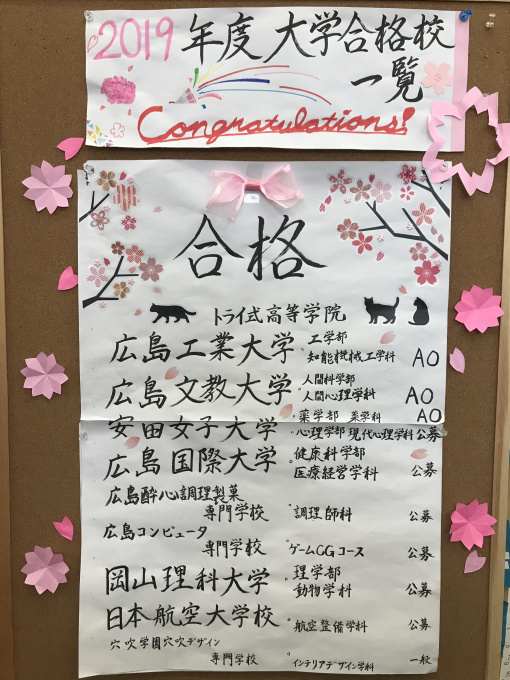 2019 年度 大学合格校
一覧
Congratulations!
合格
トライ式高等学院
広島工業大学 工学部
知能機械工学科 AO
広島文教大学 人間科学部
人間心理学科 AO
安田女子大学 °薬学部 薬学科 AO
°心理学部 現代心理学科 公募
広島国際大学 °健康科学部
医療経営学科 公募
広島酔心調理製菓
専門学校 °調理師科 公募
広島コンピュータ
専門学校 °ゲームCGコース 公募
岡山理科大学 °理学部
動物学科 公募
日本航空大学校 °航空整備科 公募
穴吹学園穴吹デザイン
専門学校 °インテリアデザイン学科 一般